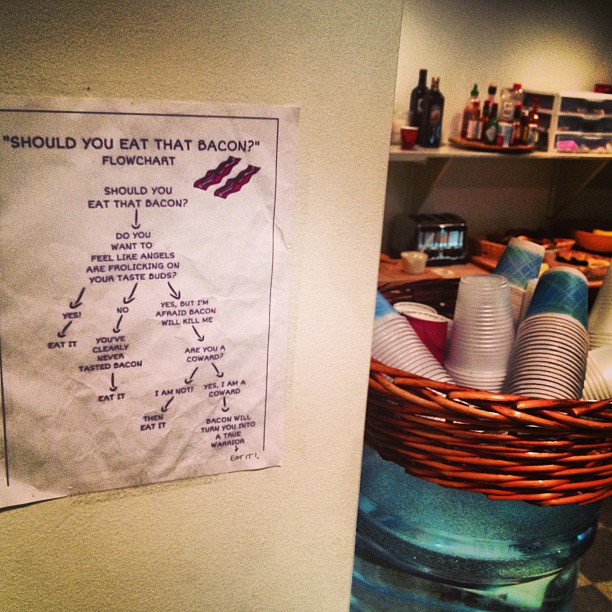 "SHOULD YOU EAT THAT BACON?"
FLOWCHART
SHOULD YOU
EAT THAT BACON?
DO YOU
WANT TO
FEEL LIKE ANGELS
ARE FROLICKING ON
YOUR TASTE BUDS?
YES!
EAT IT
NO
YOU'VE
CLEARLY
NEVER
TASTED BACON
EAT IT
YES, BUT I'M
AFRAID BACON
WILL KILL ME
ARE YOU A
COWARD?
I AM NOT!
THEN
EAT IT
YES, I AM A
COWARD
BACON WILL
TURN YOU INTO
A TRUE
WARRIOR
EAT IT!